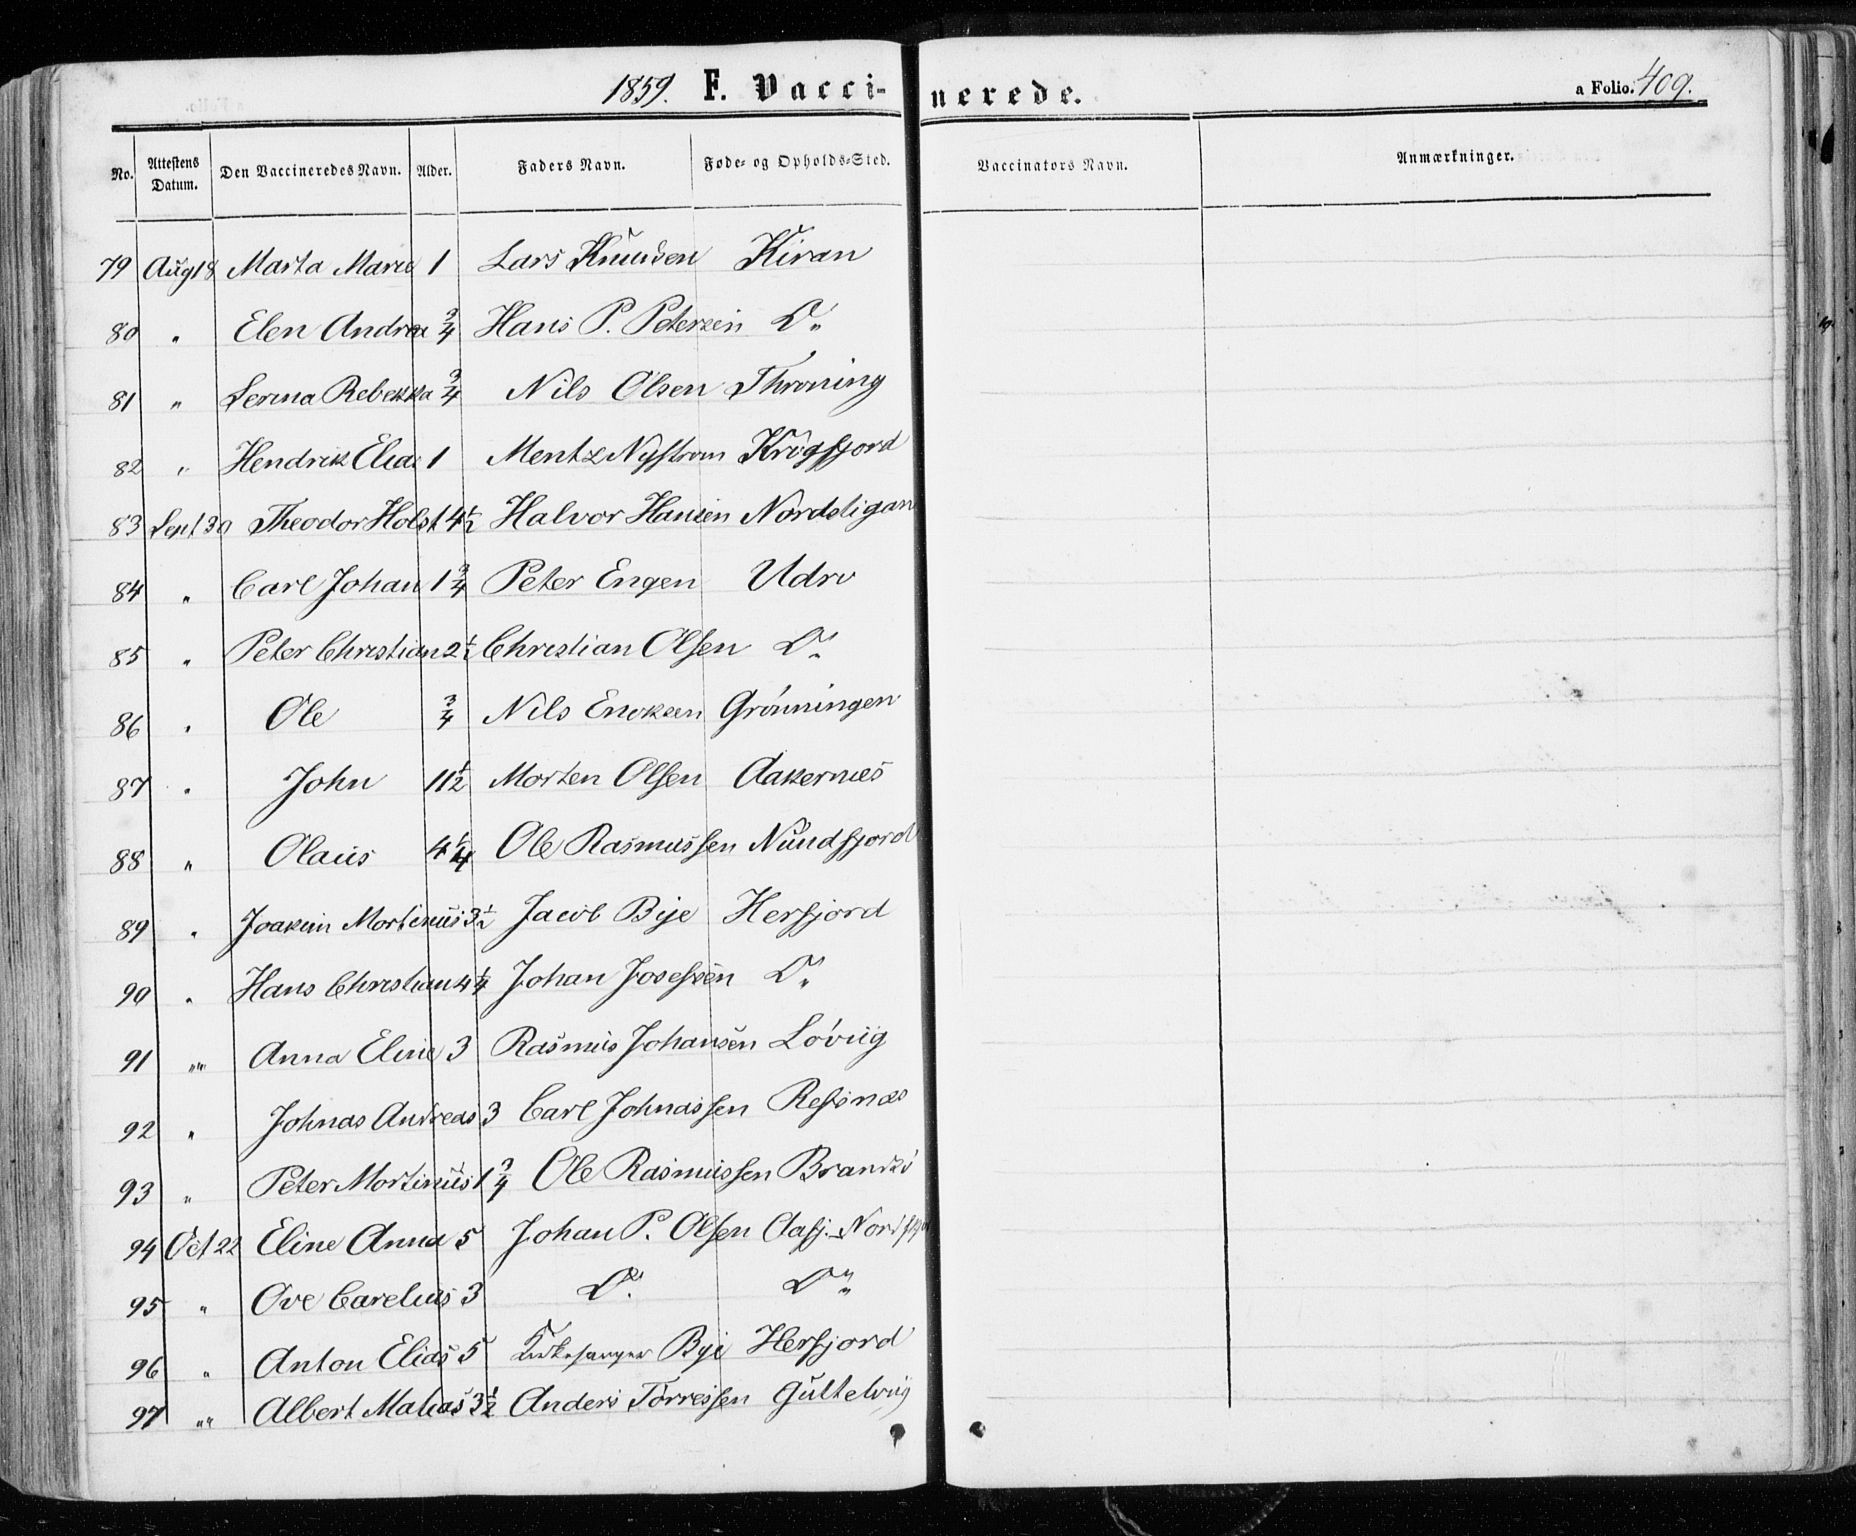 1859. F. Vaccinerede. a Folio. 409.
No. Attestens Datum. Den Vaccineredes Navn. Alder. Faders Navn. Føde- og Opholds-Sted. Vaccinators Navn. Anmærkninger.
79 Aug 18 Marta Marie 1 Lars Knudsen Kiran
80 " Elen Andrea 3/4 Hans P. Petersen Do
81 " Serina Rebekka 3/4 Nils Olsen Throning
82 " Hendrik Elias 1 Mentz Nystrom Krogfjord
83 Sept 30 Theodor Holst 4 1/2 Halvor Hansen Nordstigan
84 " Carl Johan 1 3/4 Peter Engen Udro
85 " Peter Christian 2 1/2 Christian Olsen Do
86 " Ole 3/4 Nils Enoksen Grönningen
87 " John 11 1/2 Morten Olsen Aakernæs
88 " Olaus 4 1/4 Ole Rasmussen Nundfjord
89 " Joakim Mortinus 3 1/2 Jacob Bye Herfjord
90 " Hans Christian 4 1/4 Johan Josefsen Do
91 " Anna Eline 3 Rasmus Johansen Lövvig
92 " Johnas Andreas 3 Carl Johnassen Refsnæs
93 " Peter Mortinus 1 3/4 Ole Rasmussen Brandsö
94 Oct 22 Eline Anna 5 Johan P. Olsen Aafj.
95 " Ove Carelius 3 Do Do
96 " Anton Elias 5 Kirkesanger Bye Herfjord
97 " Albert Matias 3 1/2 Anders Törressen Gultelvig